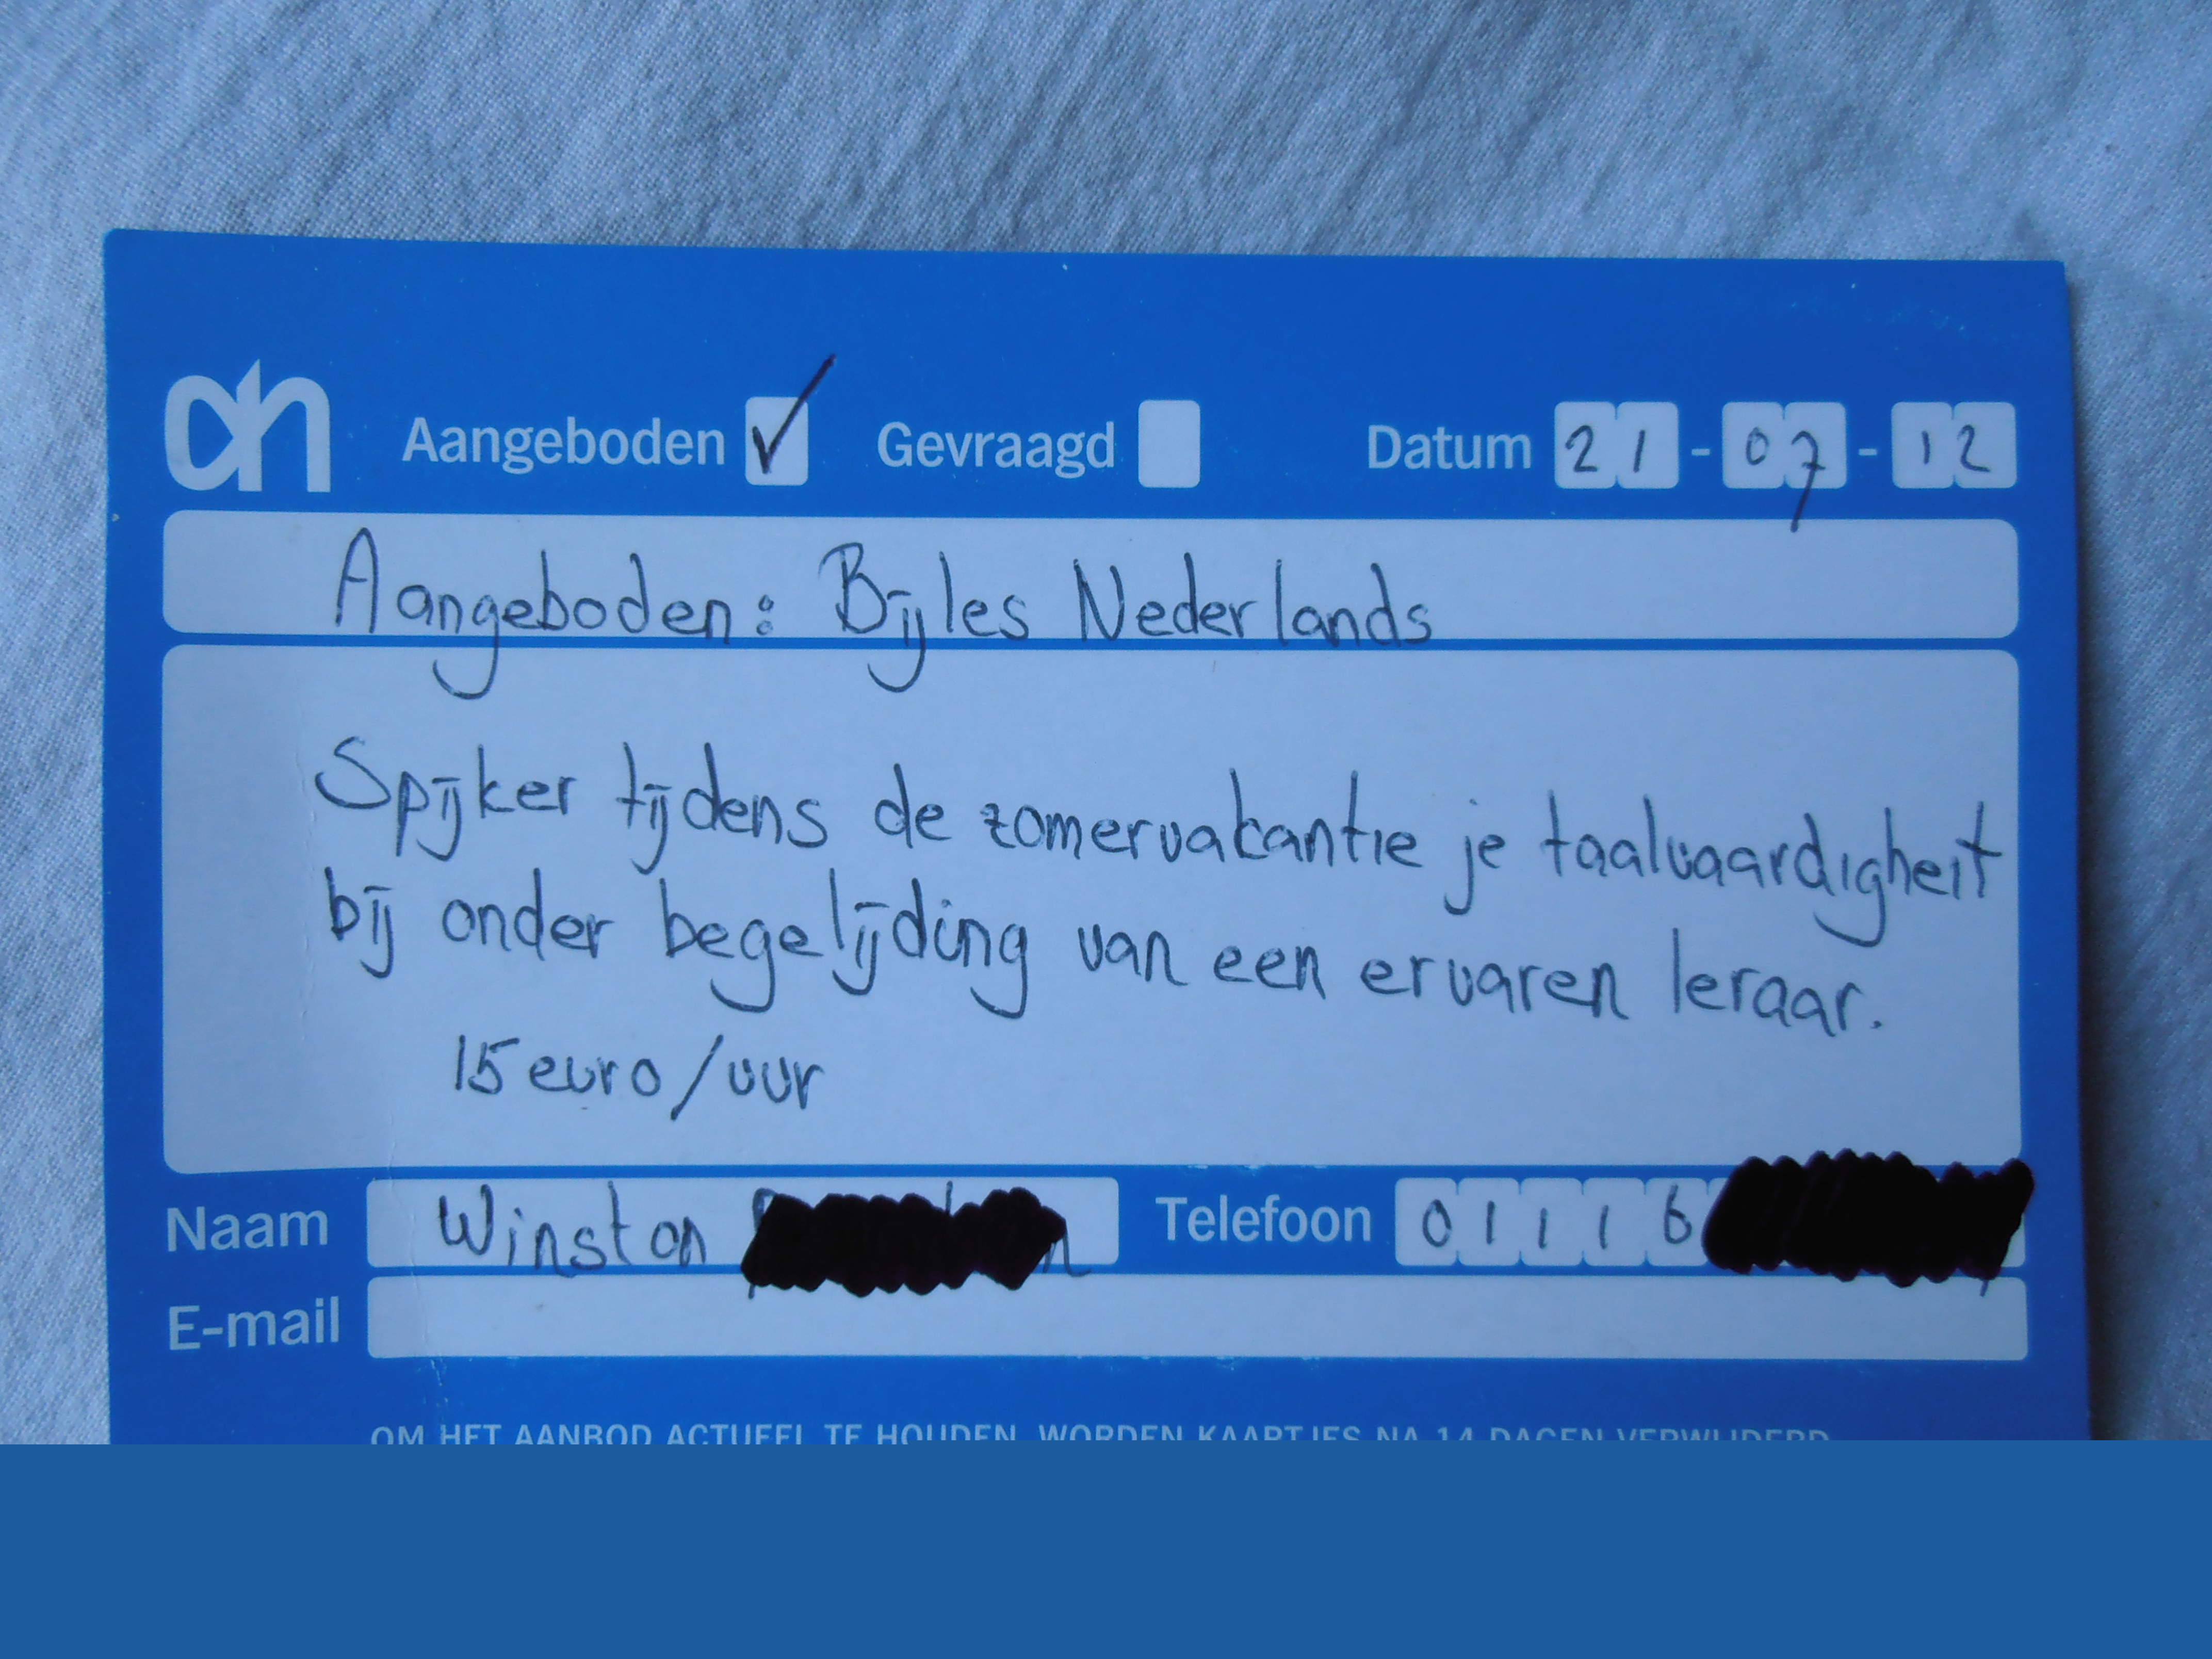 ah Aangeboden Gevraagd Datum 21-07-12
Aangeboden: Bijles Nederlands
Spijker tijdens de zomervakantie je taalvaardigheit
bij onder begelijding van een ervaren leraar.
15 euro/uur
Naam Winston Telefoon 01116
E-mail
OM HET AANBOD ACTUEEL TE HOUDEN, WORDEN KAARTJES NA 14 DAGEN VERWIJDERD